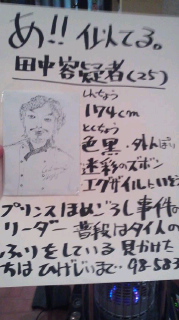 あ!! 似てる。
田中容疑者(25)
しんちょう
174cm
とくちょう
色黒・外人ぽい
迷彩のズボン
エグザイルにいそう
プリンスほめごろし事件の
リーダー 普段はタイ人の
ふりをしている 見かけた
ちはひげじいまで‥98-583